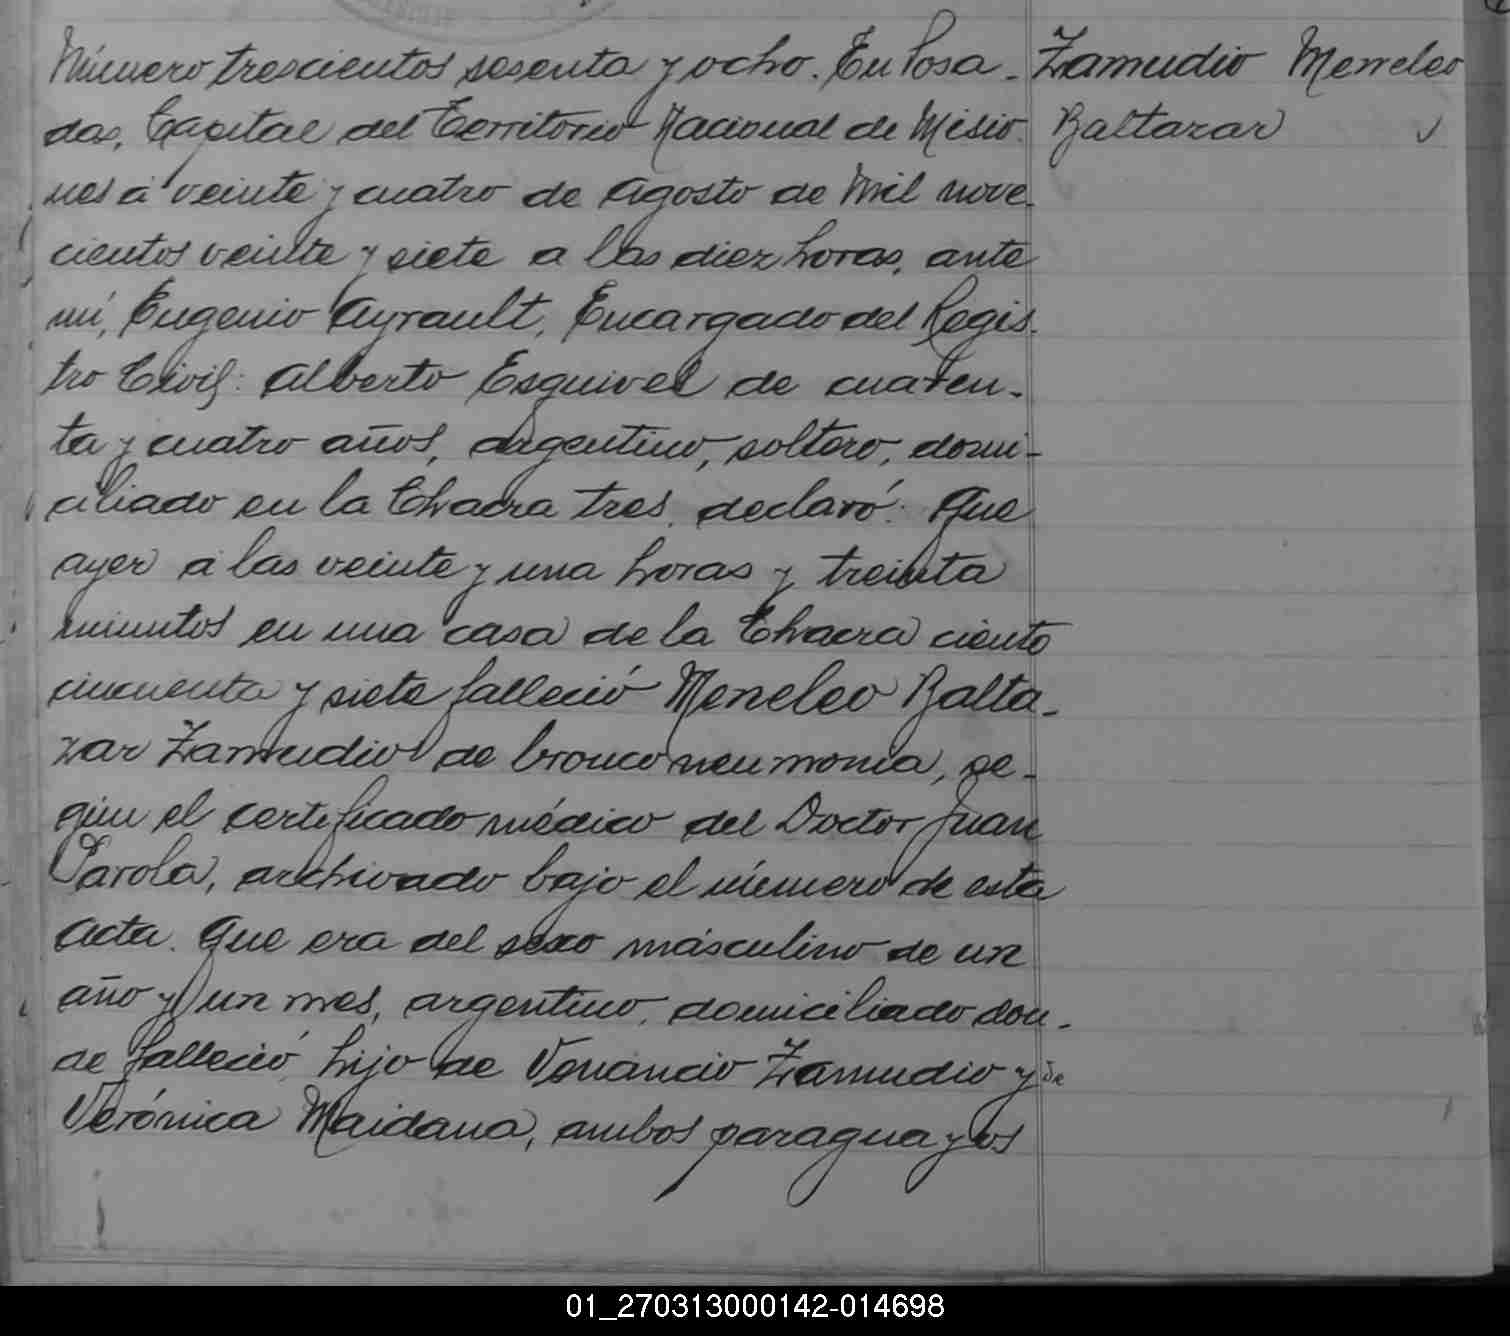 Número trescientos sesenta y ocho. En Posa-
das, Capital del Territorio Nacional de Misio-
nes á veinte y cuatro de Agosto de mil nove-
cientos veinte y siete a las diez horas, ante
mí, Eugenio Ayrault, Encargado del Regis-
tro Civil: Alberto Esquivel de cuaren-
ta y cuatro años, argentino, soltero, domi-
ciliado en la Chacra tres, declaró: Que
ayer á las veinte y una horas y treinta
minutos en una casa de la Chacra ciento
cincuenta y siete falleció Meneleo Balta-
zar Zamudio de bronconeumonia, se-
gún el certificado médico del Doctor Juan
Parola, archivado bajo el número de esta
acta. Que era del sexo másculino de un
año y un mes, argentino, domiciliado don-
de falleció, hijo de Venancio Zamudio y de
Verónica Maidana, ambos paraguayos
Zamudio Meneleo
Baltazar
01_270313000142-014698